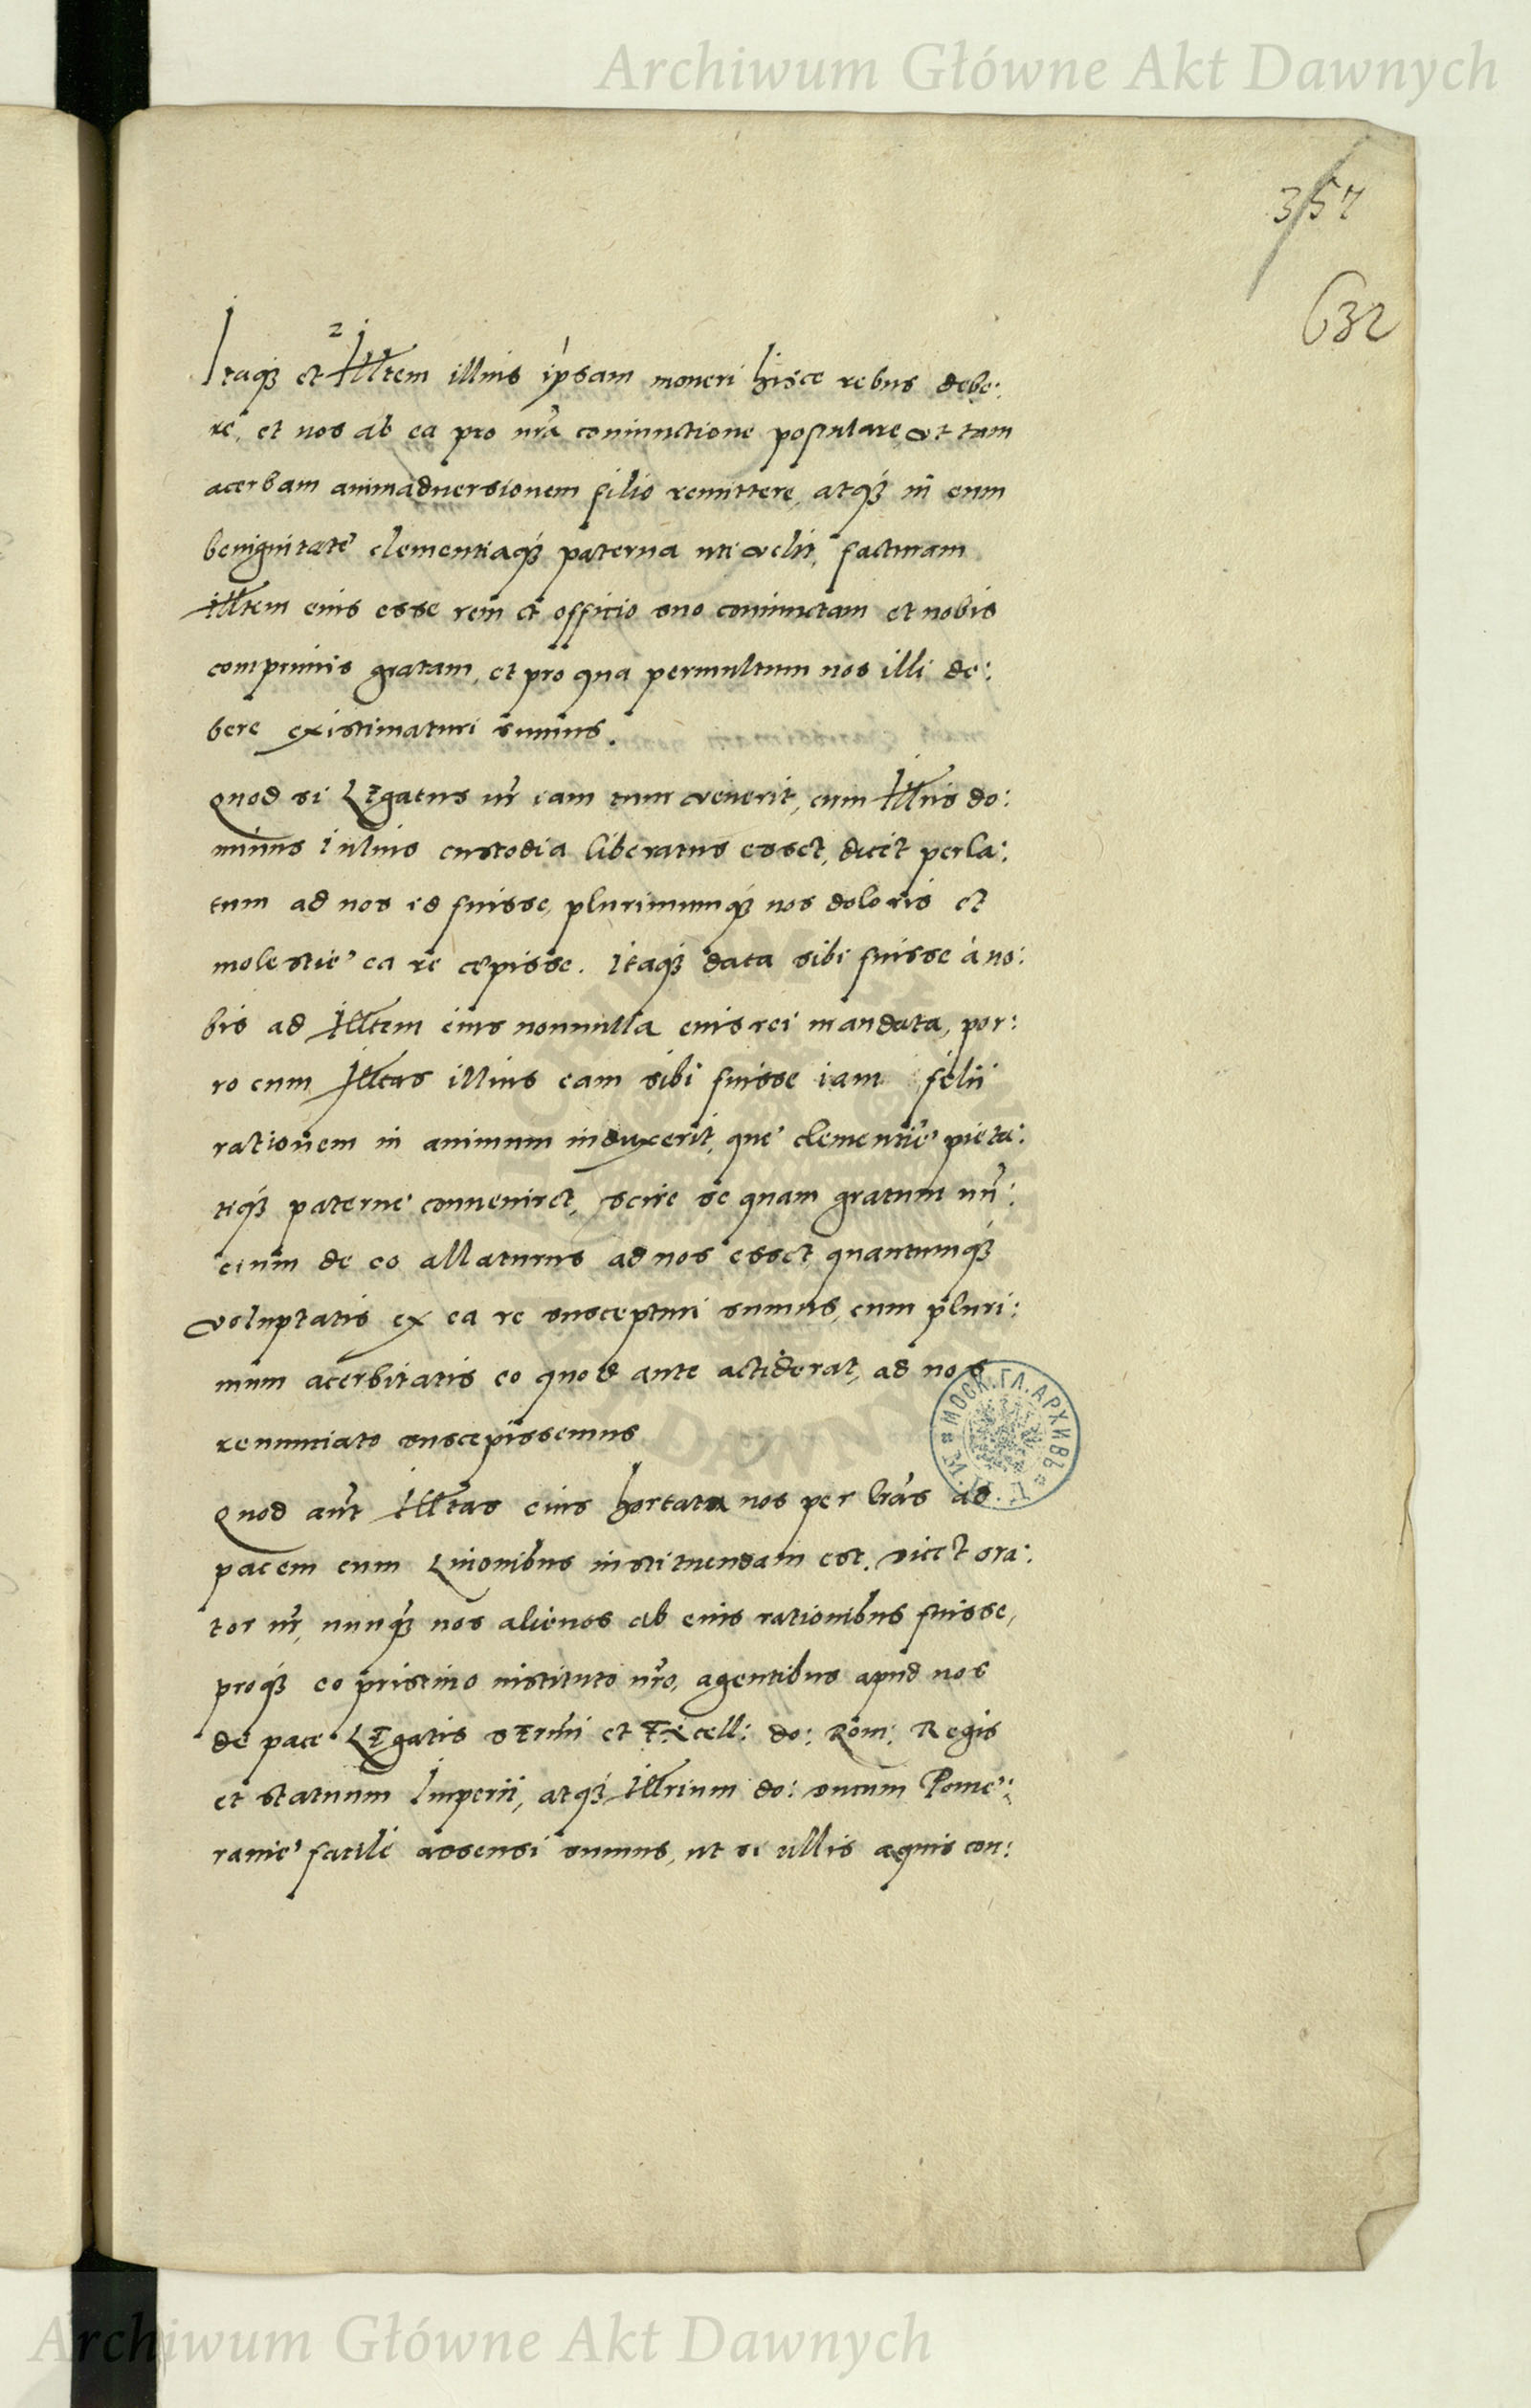 Archiwum Główne Akt Dawnych
357
632
Itaq́ꝫ et Illtem illius ipsam moneri hisce rebus debe:
re, et nos ab ea pro nr̃a coniunctione postulare, vt tam
acerbam animaduersionem filio remittere, atq́ꝫ in eum
benignitatẽ clementiaq́ꝫ paterna uti velit, facturam
Illtem eius esse rem et officio suo coniunctam et nobis
comprimis gratam, et pro qua permultum nos illi de:
bere existimaturi sumus.
Quod si Legatus nr̃ iam tum venerit, cum Illris do:
minus Iulius custodia liberatus esset, dicet perla:
tum ad nos id fuisse, plurimumq́ꝫ nos doloris et
molestię ea re cepisse. Itaq́ꝫ data sibi fuisse à no:
bis ad Illtem eius nonnulla eius rei mandata, por:
ro cum Illtas illius eam sibi fuisse iam filii
rationem in animum induxerit, quę clementię pieta:
tiq́ꝫ paternę conueniret, scire se quam gratum nũ:
cium de eo allaturus ad nos esset, quantumq́ꝫ
voluptatis ex ea re suscepturi sumus, cum pluri:
mum acerbitatis eo quod ante acciderat, ad nos
renunciato suscepissemus
Quod aũt Illtas eius hortata nos per lrãs ad
pacem cum Liuonibus instituendam est, dicet ora:
tor nr̃, nunq́ꝫ nos alienos ab eius rationibus fuisse,
proq́ꝫ eo pristino instituto nr̃o, agentibus apud nos
de pace Legatis Sermi et Excell: do: Rom: Regis
et statuum Imperii, atq́ꝫ Illrium do: ducum Pome:
ranię facile assensi sumus, ut si ullis aequis con:
МОСК. ГЛ. АРХИВЪ
Archiwum Główne Akt Dawnych